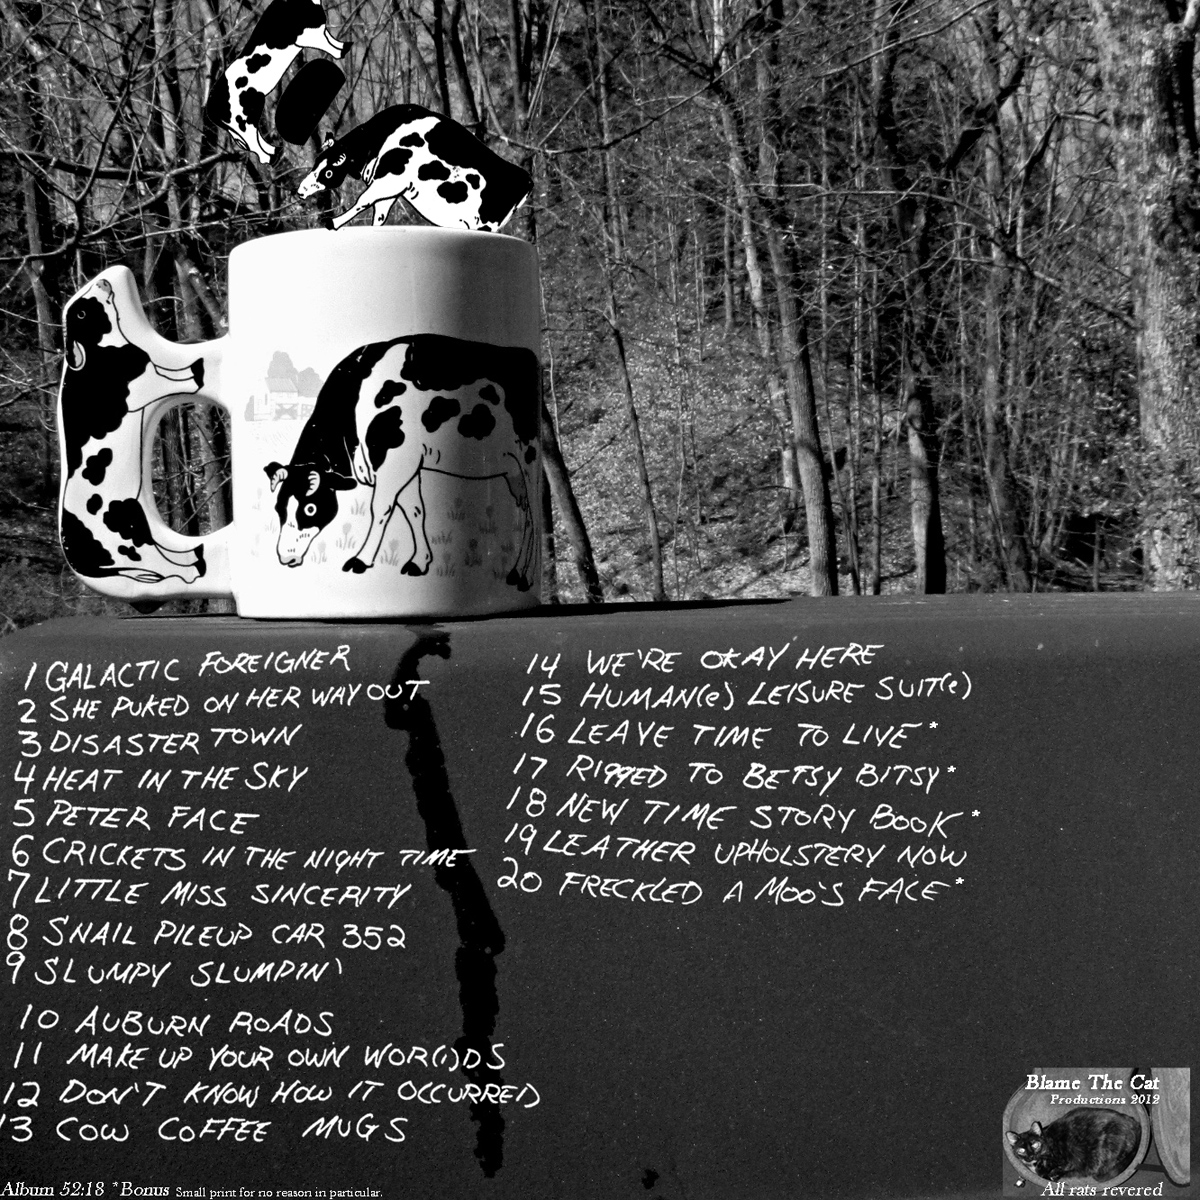 1 GALACTIC FOREIGNER
2 SHE PUKED ON HER WAY OUT
3 DISASTER TOWN
4 HEAT IN THE SKY
5 PETER FACE
6 CRICKETS IN THE NIGHT TIME
7 LITTLE MISS SINCERITY
8 SNAIL PILEUP CAR 352
9 SLUMPY SLUMPIN'
10 AUBURN ROADS
11 MAKE UP YOUR OWN WOR(L)DS
12 DON'T KNOW HOW IT OCCURRED
13 COW COFFEE MUGS
14 WE'RE OKAY HERE
15 HUMAN(e) LEISURE SUIT(e)
16 LEAVE TIME TO LIVE *
17 RIGGED TO BETSY BITSY *
18 NEW TIME STORY BOOK *
19 LEATHER UPHOLSTERY NOW
20 FRECKLED A MOO'S FACE *
Blame The Cat
Productions 2012
All rats revered
Album 52:18 *Bonus Small print for no reason in particular.